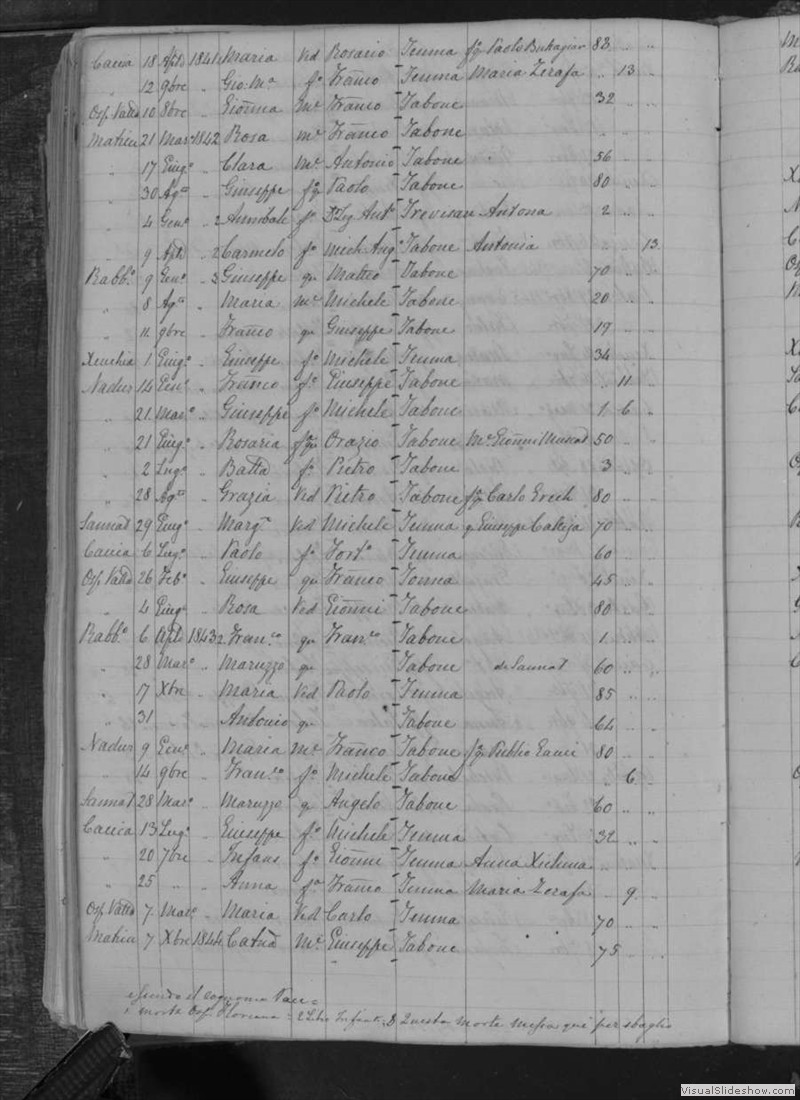 Caccia 18 Aple 1841 Maria Ved Rosario Temma fq Paolo Buhagiar 88 .. ..
" 12 9bre .. Gio: Ma fa Franco Temma Maria Zerafa .. 13 ..
Osp. Vatta 10 8bre .. Gionna Me Franco Tabone 32
Matieu 21 Maro 1842 Rosa me Franco Tabone .. ..
" 17 Giugo .. Clara Me Antonio Tabone 56
" 30 Agto .. Giuseppe fq Paolo Tabone 80
" 4 Geno 2 Annibale fo Anto Trevisan Antona 2 .. ..
" 9 Aple 2 Carmelo fo Mich Ango Tabone Antonia .. .. 13
Rabbo 9 Geno 2 Giuseppe qu Matteo Tabone 70
" 8 Agto .. Maria Me Michele Tabone 20
" 11 9bre .. Franco qu Giuseppe Tabone 19
Xeuchia 1 Giugo .. Giuseppe fo Michele Temma 34
Nadur 14 Geno .. Franco fo Giuseppe Tabone .. 11
" 21 Maro .. Giuseppe fo Michele Tabone 1 6
" 21 Giugo .. Rosaria fqu Orazio Tabone Me Gionni Muscat 50
" 2 Lugo .. Batta fo Pietro Tabone 3
" 28 Agto .. Grazia Ved Pietro Tabone fq Carlo Grech 80
Sannat 29 Giugo .. Marga Ved Michele Temma q Giuseppe Calleja 70
Caccia 6 Lugo .. Paolo fo Forto Temma 60
Osp. Vatta 26 Febo .. Giuseppe qu Franco Tonna 45
" 4 Giugo .. Rosa Ved Gionni Tabone 80
Rabbo 6 Aple 1843 2 Franco qu Franco Tabone 1
" 28 Maro .. Maruzzo qu Tabone de Sannat 60
" 17 Xbre .. Maria Ved Paolo Temma 85
" 31 Antonio qu Tabone 64
Nadur 9 Geno .. Maria Me Franco Tabone fq Publio Gauci 80
" 14 9bre .. Franco fo Michele Tabone .. 6
Sannat 28 Maro .. Maruzzo q Angelo Tabone 60
Caccia 13 Lugo .. Giuseppe fo Michele Temma 32
" 20 7bre .. Infans fo Gionni Temma Anna
" 25 .. .. Anna fa Franco Temma Maria Zerafa .. 9
Osp. Vatta 7 Maro .. Maria Ved Carlo Temma 70
Matieu 7 Xbre 1844 Catna Me Giuseppe Tabone 75
il cognome
1 morta Osp. Floriana = 2 Libro Infanti, Questa morte messa qui per sbaglio
VisualSlideshow.com